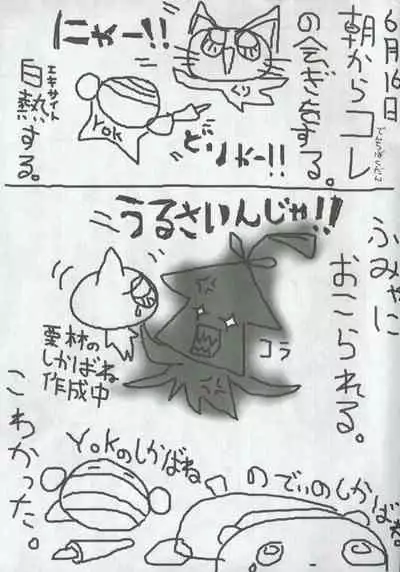 6月16日
朝からコレ
でんちばくだん
の会ぎをする。
にゃー!!
くり
Yok
どりゃー!!
エキサイト
白熱する。
ふみゃに
おこられる。
うるさいんじゃ!!
コラ
栗林の
しかばね
作成中
こわかった。
Yokのしかばね
のでぃのしかばね。